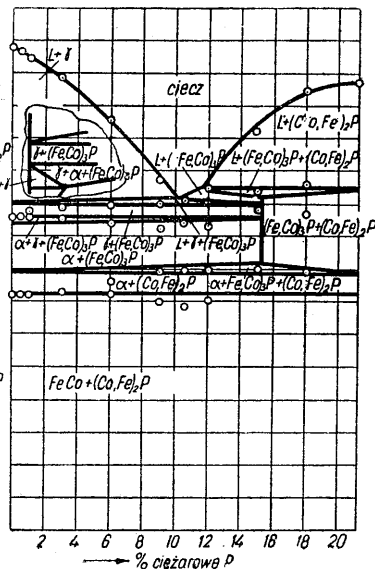 L+γ
ciecz
L+(C o,Fe)₂P
γ+(Fe,Co)₃P
γ+α+(Fe,Co)₃P
L+( Fe,Co)₃P
L+(Fe,Co)₃P+(Co,Fe)₂P
(Fe,Co)₃P+(Co,Fe)₂P
α+γ+(Fe,Co)₃P
γ+(Fe,Co)₃P
L+γ+(Fe,Co)₃P
α+(Fe,Co)₃P
α+(Co,Fe)₂P
α+Fe,Co)₃P+(Co,Fe)₂P
FeCo+(Co,Fe)₂P
2 4 6 8 10 12 14 16 18 20
→ % ciężarowe P